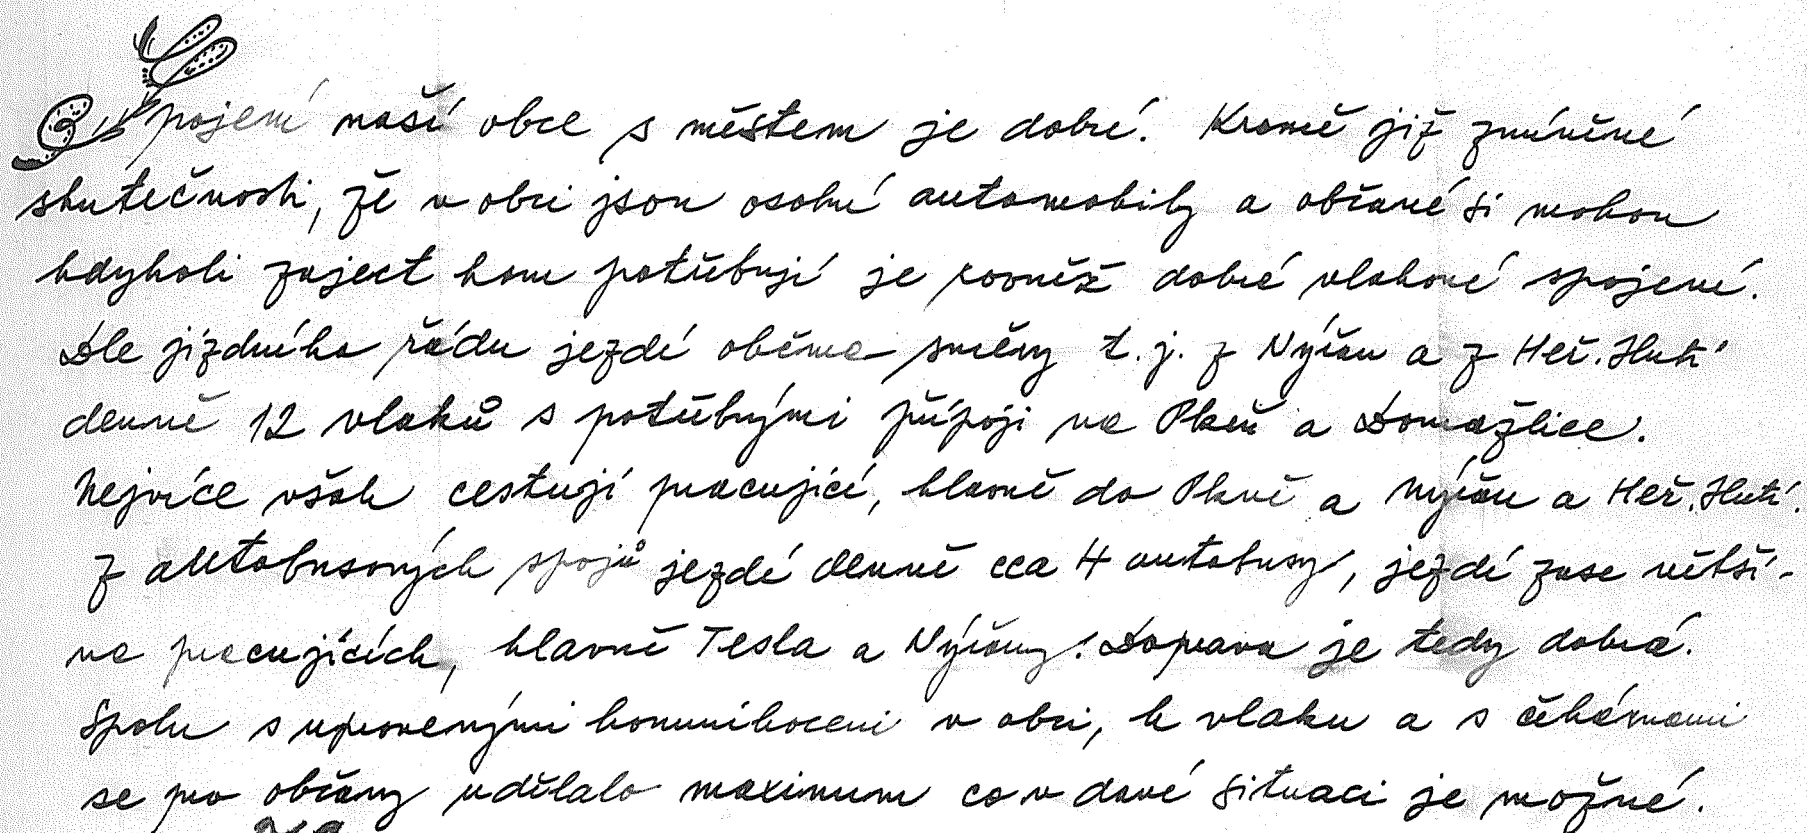 Spojení naší obce s městem je dobré. Kromě již zmíněné
skutečnosti, že v obci jsou osobní automobily a občané si mohou
kdykoli zaject kam potřebují je rovněž dobré vlakové spojení.
Dle jízdního řádu jezdí oběma směry t.j. z Nýřan a z Heř. Hutí
denně 12 vlaků s potřebnými přípoji na Plzeň a Domažlice.
Nejvíce však cestují pracující, hlavně do Plzně a Nýřan a Heř. Hutí.
Z autobusových spojů jezdí denně cca 4 autobusy, jezdí zase větši-
na pracujících, hlavně Tesla a Nýřany. Doprava je tedy dobrá.
Spolu s upravenými komunikacemi v obci, k vlaku a s čekárnami
se pro občany udělalo maximum co v dané situaci je možné.